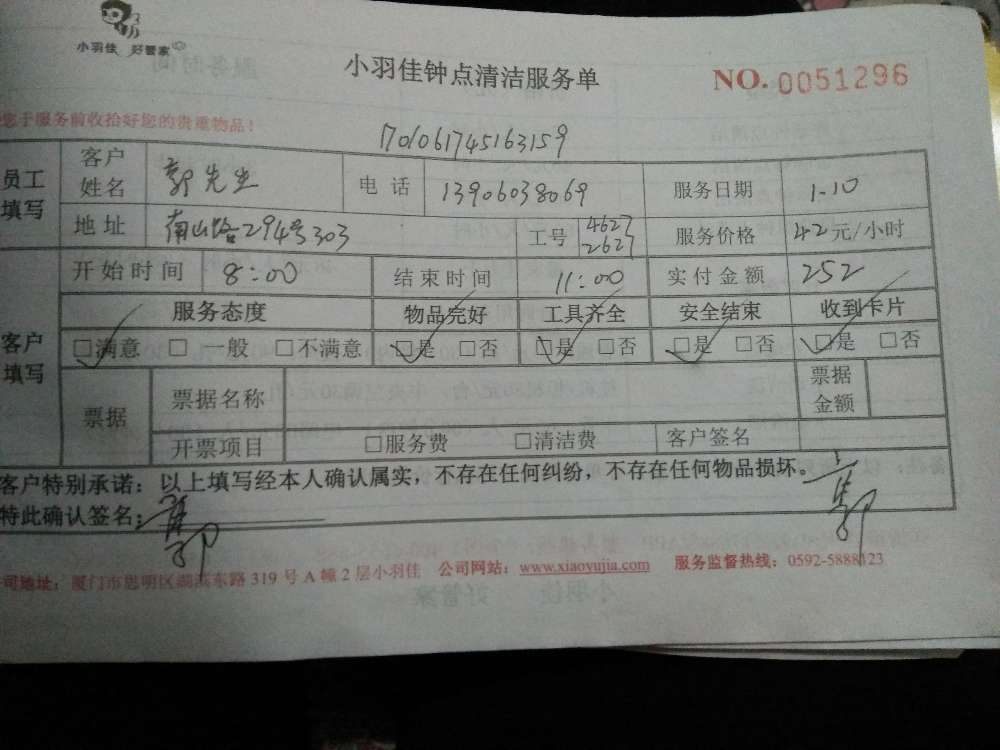 小羽佳 好管家
小羽佳钟点清洁服务单
NO. 0051296
您于服务前收拾好您的贵重物品！
1701061745163159
员工填写 客户姓名 郭先生 电话 13906038069 服务日期 1-10
地址 南山路294号303 工号 4627 2627 服务价格 42元/小时
客户填写 开始时间 8:00 结束时间 11:00 实付金额 252
服务态度 物品完好 工具齐全 安全结束 收到卡片
□满意 □一般 □不满意 □是 □否 □是 □否 □是 □否 □是 □否
票据 票据名称 票据金额
开票项目 □服务费 □清洁费 客户签名
客户特别承诺：以上填写经本人确认属实，不存在任何纠纷，不存在任何物品损坏。
特此确认签名：
公司地址：厦门市思明区湖滨东路 319 号 A 幢 2 层小羽佳 公司网站：www.xiaoyujia.com 服务监督热线：0592-5888123